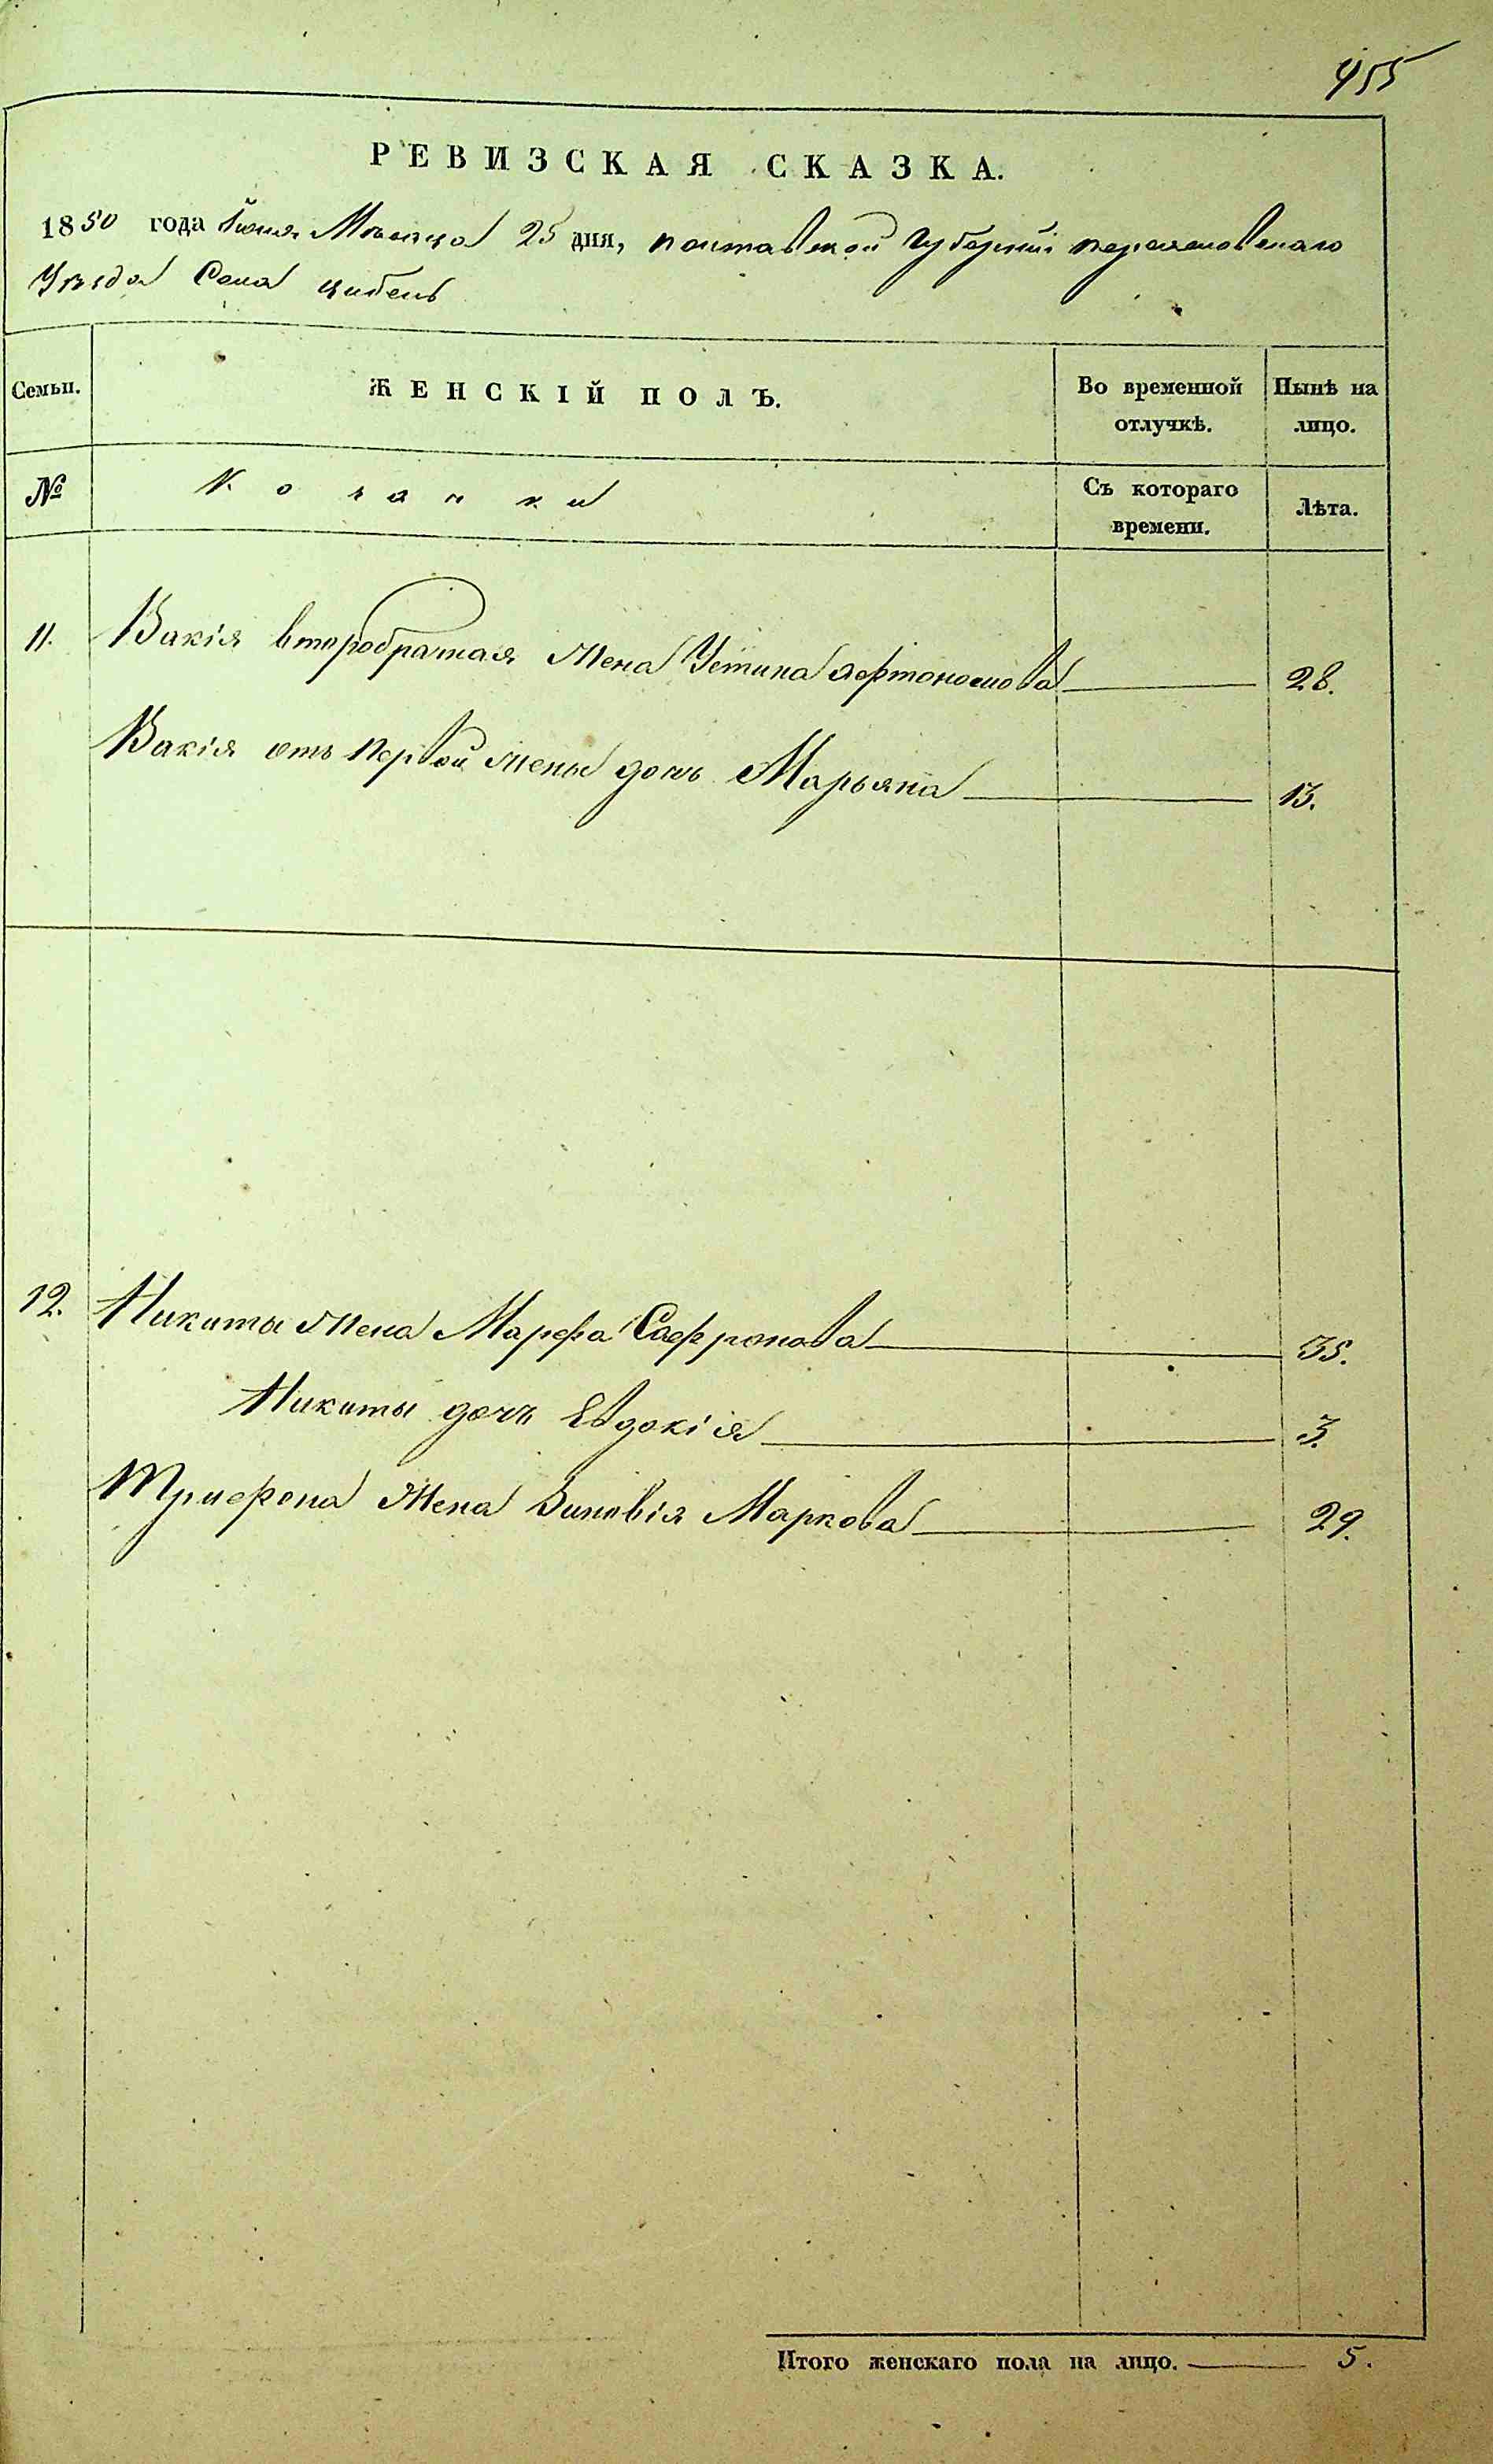 455
РЕВИЗСКАЯ СКАЗКА.
1850 года Іюня Мѣсяца 25 дня, полтавской Губерніи переяславскаго
Уѣзда Села цибель
Семьи. ЖЕНСКІЙ ПОЛЪ. Во временной отлучкѣ. Нынѣ на лицо.
№ Козачки Съ котораго времени. Лѣта.
11. Вакія второбрачная Жена Устина 28.
Вакія отъ первой жены дочь Марьяна 13.
12. Никиты Жена Марфа Сафронова 35.
Никиты дочь Евдокія 3.
Трифона Жена Зиновія Маркова 29.
Итого женскаго пола на лицо. 5.